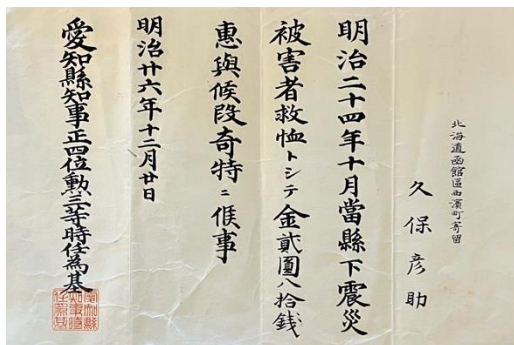 北海道函館區西濱町寄留
久保彦助
明治二十四年十月當縣下震災
被害者救恤トシテ金貳圓八拾錢
惠與候段奇特ニ候事
明治廿六年十二月廿日
愛知縣知事正四位勳三等時任為基
愛知縣
知事時
任為基